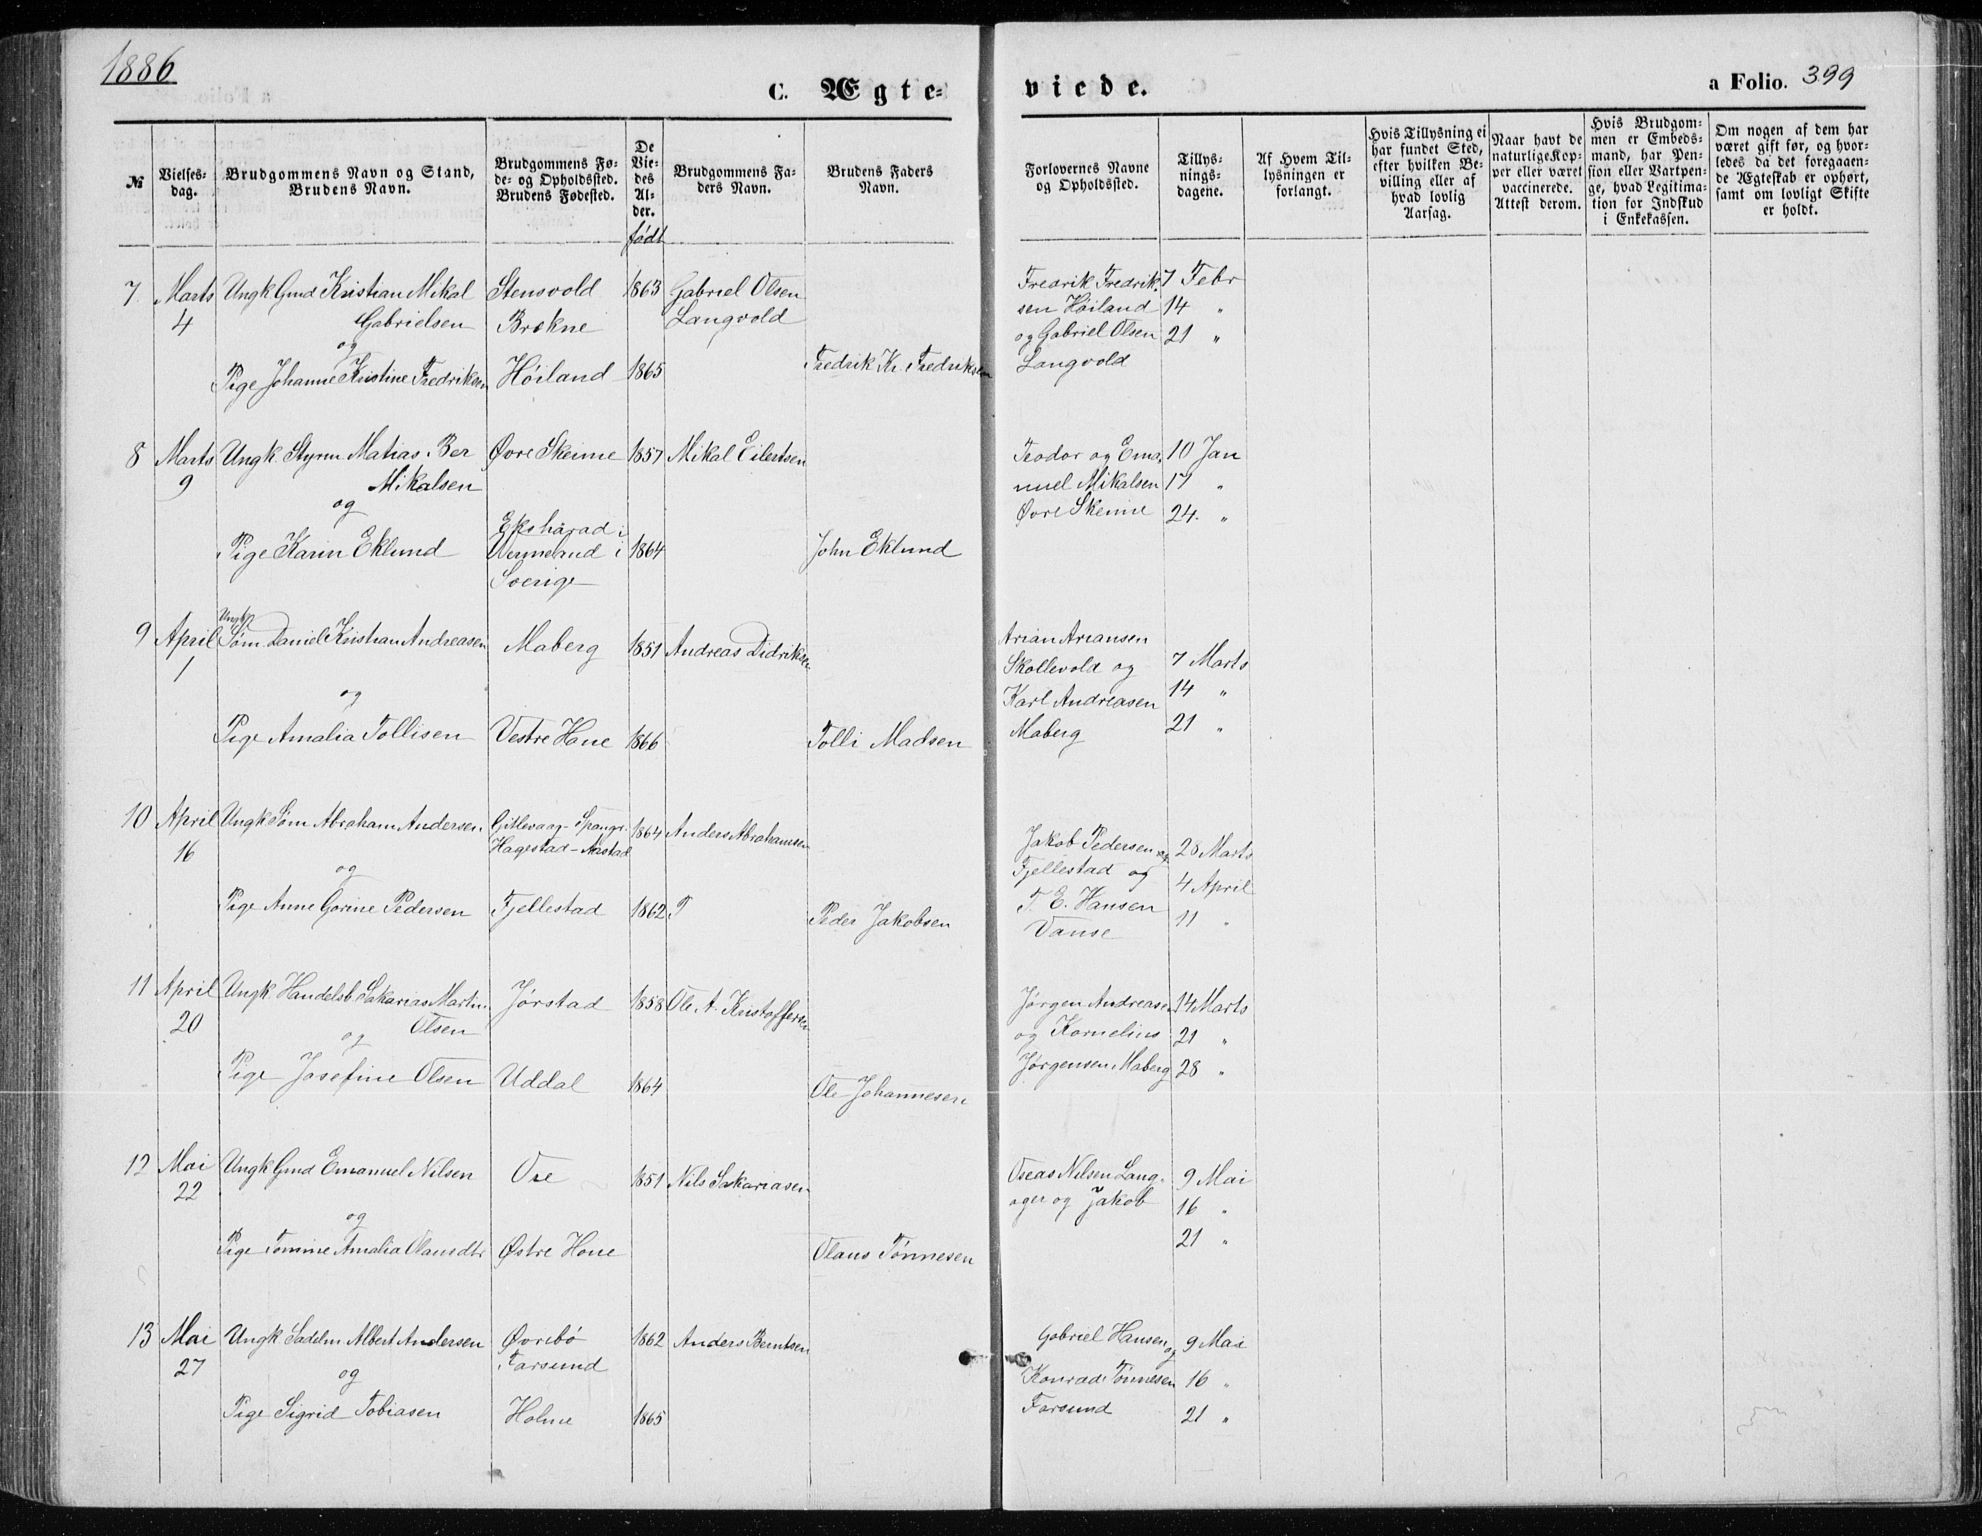 1886
C. Ægte-
viede.
a Folio. 399
№
Vielses-
dag.
Brudgommens Navn og Stand,
Brudens Navn.
Brudgommens Fø-
de- og Opholdssted.
Brudens Fødested.
De
Vie-
des
Al-
der.
født
Brudgommens Fa-
ders Navn.
Brudens Faders
Navn.
Forlovernes Navne
og Opholdssted.
Tillys-
nings-
dagene.
Af Hvem Til-
lysningen er
forlangt.
Hvis Tillysning ei
har fundet Sted,
efter hvilken Be-
villing eller af
hvad lovlig
Aarsag.
Naar havt de
naturlige Kop-
per eller været
vaccinerede.
Attest derom.
Hvis Brudgom-
men er Embeds-
mand, har Pen-
sion eller Vartpen-
ge, hvad Legitima-
tion for Indskud
i Enkekassen.
Om nogen af dem har
været gift før, og hvor-
ledes da det foregaaen-
de Ægteskab er ophørt,
samt om lovligt Skifte
er holdt.
7 Marts Ungk Gmd Kristian Mikal Stensvold 1863 Gabriel Olsen Fredrik Fredrik- 7 Febr
4 Gabrielsen Brekne Langvold sen Höiland 14 "
og og Gabriel Olsen 21 "
Pige Johanne Kristine Fredriksen Höiland 1865 Fredrik Kr. Fredriksen Langvold
8 Marts Ungk. Styrm Matias Ber Øvre Skeime 1857 Mikal Eilertsen Teodor og Ema- 10 Jan
9 Mikalsen nuel Mikalsen 17 "
og Øvre Skeime 24. "
Ekshärad i
Pige Karin Eklund Wermland i 1864 John Eklund
Sverige
9 April Ungk Søm. Daniel Kristian Andreasen Maberg 1851 Andreas Didriksen Arian Ariansen
1 Skollevold og 7 Marts
og Karl Andreasen 14 "
Pige Amalia Tollisen Vestre Haue 1866 Tolli Madsen Maberg 21 "
10 April Ungk Søm Abraham Andersen Gitlevaag - Spangr. 1864 Anders Abrahamsen Jakob Pedersen og 28 Marts
16 Hagestad - Aastad
og Fjellestad og 4 April
Pige Anne Gorine Pedersen Fjellestad 1862 P Peder Jakobsen T. E. Hansen 11 "
Vanse
11 April Ungk. Handelsb. Sakarias Martin Jørstad 1858 Ole A. Kristoffersen Jørgen Andreasen 14 Marts
20 Olsen og Kornelius 21 "
og
Pige Josefine Olsen Uddal 1864 Ole Johannesen Jørgensen Maberg 28 "
12 Mai Ungk Gmd Emanuel Nilsen Ore 1851 Nils Sakariasen Oseas Nilsen Lang- 9 Mai
22 ager og Jakob 16 "
og 21 "
Pige Tomine Amalia Olausdtr Østre Haue Olaus Tönnesen
13 Mai Ungk Sadelm Albert Andersen Øvrebö 1862 Anders Berntsen Gabriel Hansen og 9 Mai
27 Farsund
og Konrad Tönnesen 16 "
Pige Sigrid Tobiasen Holme 1865 Farsund 21 "